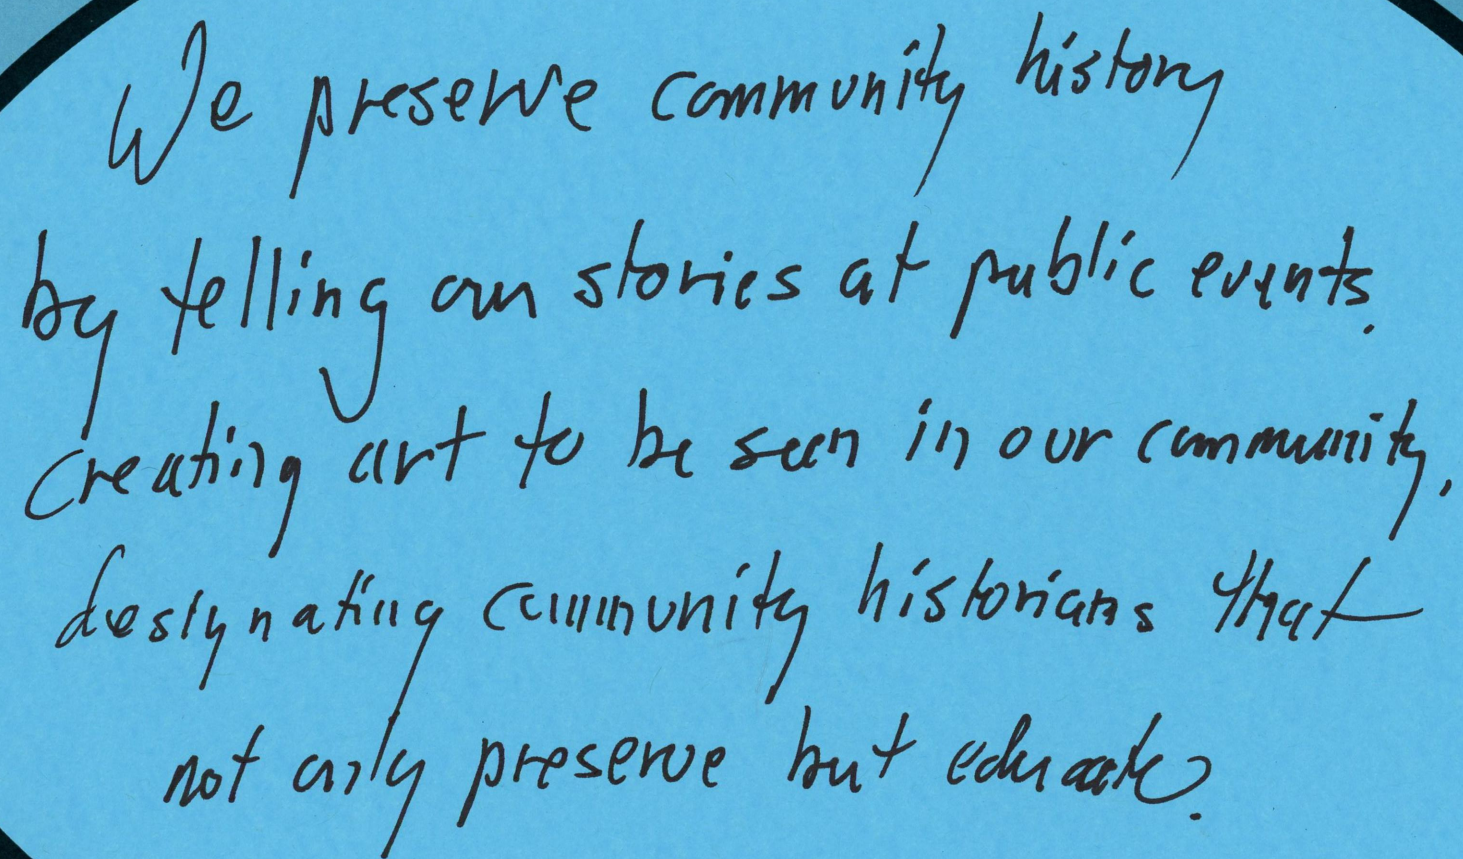 We preserve community history
by telling our stories at public events.
creating art to be seen in our community,
designating community historians that
not only preserve but educate.